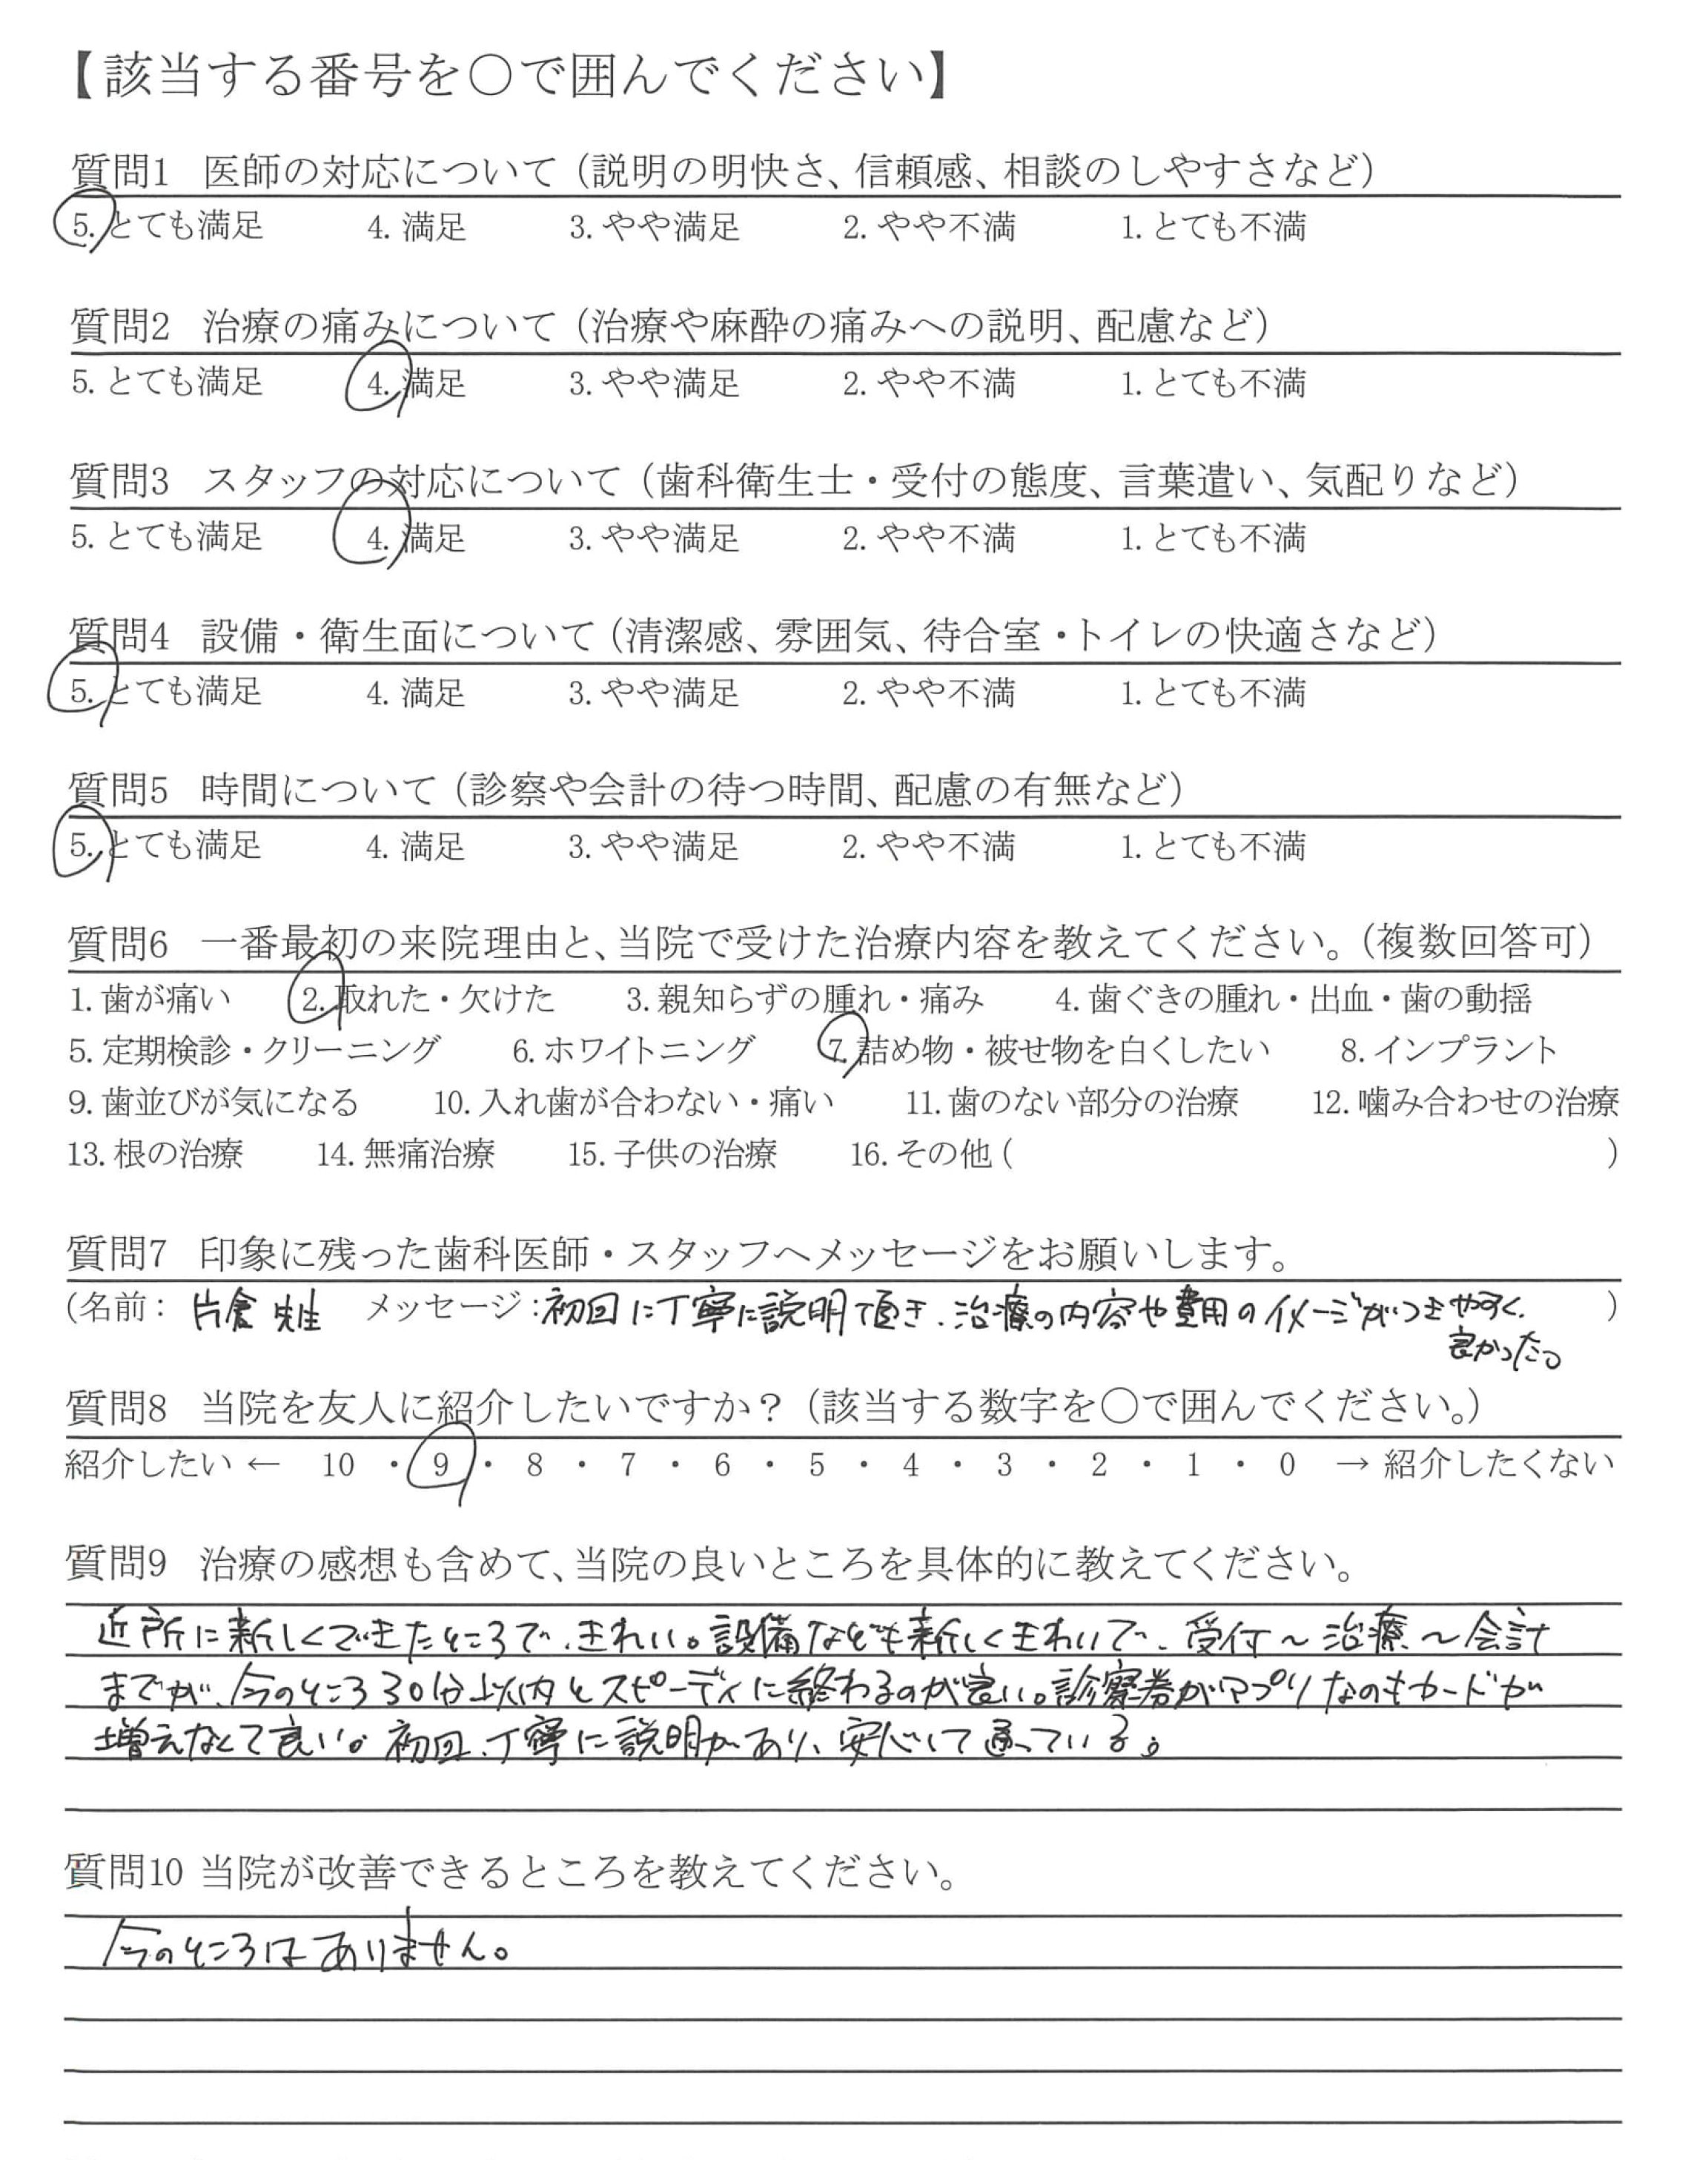 【該当する番号を〇で囲んでください】
質問1 医師の対応について（説明の明快さ、信頼感、相談のしやすさなど）
5. とても満足 4. 満足 3. やや満足 2. やや不満 1. とても不満
質問2 治療の痛みについて（治療や麻酔の痛みへの説明、配慮など）
5. とても満足 4. 満足 3. やや満足 2. やや不満 1. とても不満
質問3 スタッフの対応について（歯科衛生士・受付の態度、言葉遣い、気配りなど）
5. とても満足 4. 満足 3. やや満足 2. やや不満 1. とても不満
質問4 設備・衛生面について（清潔感、雰囲気、待合室・トイレの快適さなど）
5. とても満足 4. 満足 3. やや満足 2. やや不満 1. とても不満
質問5 時間について（診察や会計の待つ時間、配慮の有無など）
5. とても満足 4. 満足 3. やや満足 2. やや不満 1. とても不満
質問6 一番最初の来院理由と、当院で受けた治療内容を教えてください。（複数回答可）
1. 歯が痛い 2. 取れた・欠けた 3. 親知らずの腫れ・痛み 4. 歯ぐきの腫れ・出血・歯の動揺
5. 定期検診・クリーニング 6. ホワイトニング 7. 詰め物・被せ物を白くしたい 8. インプラント
9. 歯並びが気になる 10. 入れ歯が合わない・痛い 11. 歯のない部分の治療 12. 噛み合わせの治療
13. 根の治療 14. 無痛治療 15. 子供の治療 16. その他（ ）
質問7 印象に残った歯科医師・スタッフへメッセージをお願いします。
（名前： 片倉 先生 メッセージ：初回に丁寧に説明頂き、治療の内容や費用のイメージがつきやすく、 ）
良かった。
質問8 当院を友人に紹介したいですか？（該当する数字を〇で囲んでください。）
紹介したい ← 10 ・ 9 ・ 8 ・ 7 ・ 6 ・ 5 ・ 4 ・ 3 ・ 2 ・ 1 ・ 0 → 紹介したくない
質問9 治療の感想も含めて、当院の良いところを具体的に教えてください。
近所に新しくできたところで、きれい。設備なども新しくきれいで、受付～治療～会計
までが、今のところ30分以内とスピーディに終わるのが良い。診察券がアプリなのもカードが
増えなくて良い。初回、丁寧に説明があり、安心して通っている。
質問10 当院が改善できるところを教えてください。
今のところはありません。